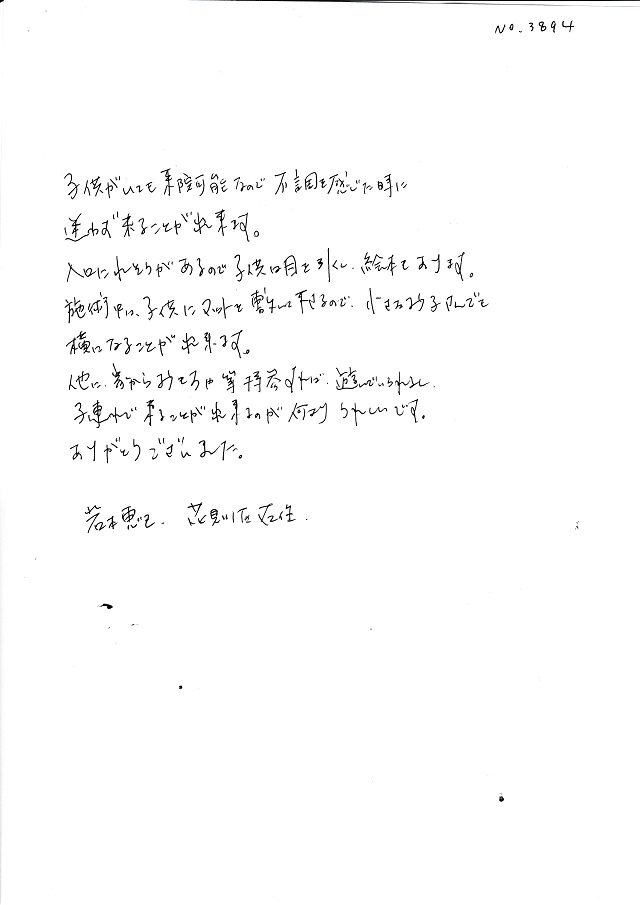 No.3894
子供がいても来院可能なので不調を感じた時に
迷わず来ることが出来ます。
入口にれそうがあるので子供は目を引くし、絵本もあります。
施術中は、子供にマットを敷いて下さるので、小さなお子さんでも
横になることが出来ます。
他に、おもちゃ等持参すれば、遊んでいられるし、
子連れで来ることが出来るのが何よりうれしいです。
ありがとうございました。
岩本恵 花見川区在住.